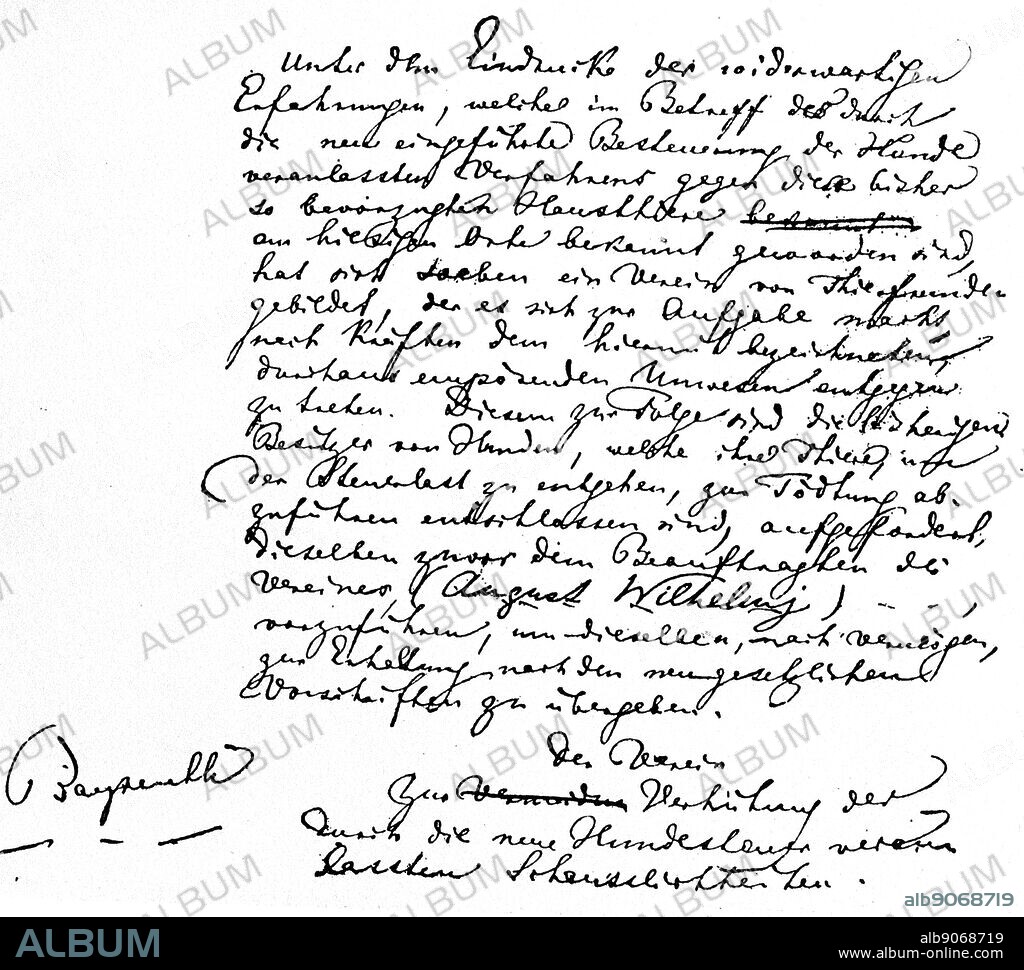 Unter dem Eindrucke der widerwärtigen
Erfahrungen, welche im Betreff des durch
die neu eingeführte Besteuerung der Hunde
veranlassten Verfahrens gegen diese bisher
so bevorzugten Hausthiere
am hiesigen Orte bekannt geworden sind,
hat sich soeben ein Verein von Thierfreunden
gebildet, der es sich zur Aufgabe macht,
nach Kräften dem hiermit bezeichneten,
durchaus empörenden Unwesen entgegen
zu treten. Diesem zur Folge sind die bisherigen
Besitzer von Hunden, welche ihre Thiere, um
der Steuerlast zu entgehen, zur Tödtung ab-
zuführen entschlossen sind, aufgefordert,
dieselben zuvor dem Beauftragten des
Vereines, (August Wilhelmj) - - ,
vorzuführen, um dieselben, nach Vermögen,
zur Erhaltung nach den neugesetzlichen
Vorschriften zu übergeben.
Der Verein
Bayreuth
zur Verhütung der
durch die neue Hundesteuer veran
lassten Scheusslichkeiten.
alb9068719
ALBUM
alb9068719
www.album-online.com